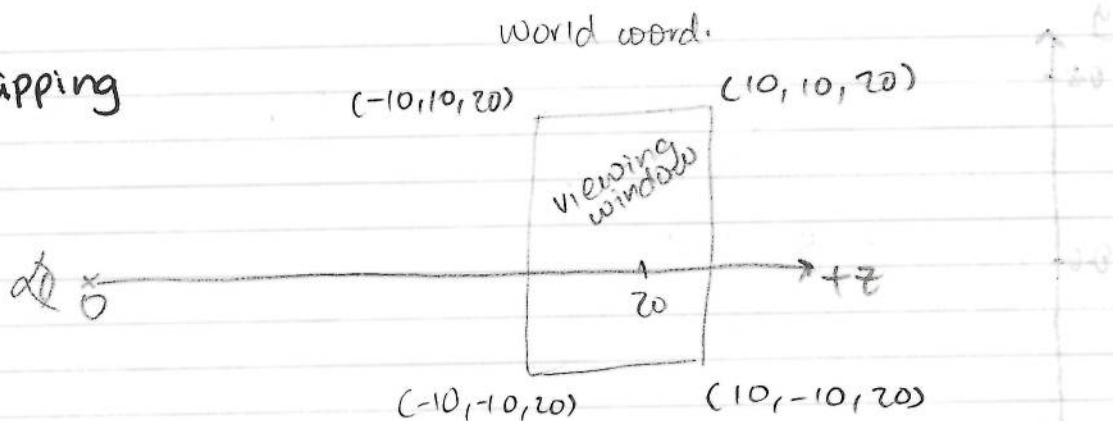 world coord.
apping
(-10, 10, 20)
(10, 10, 20)
viewing
window
0
20
+z
(-10, -10, 20)
(10, -10, 20)